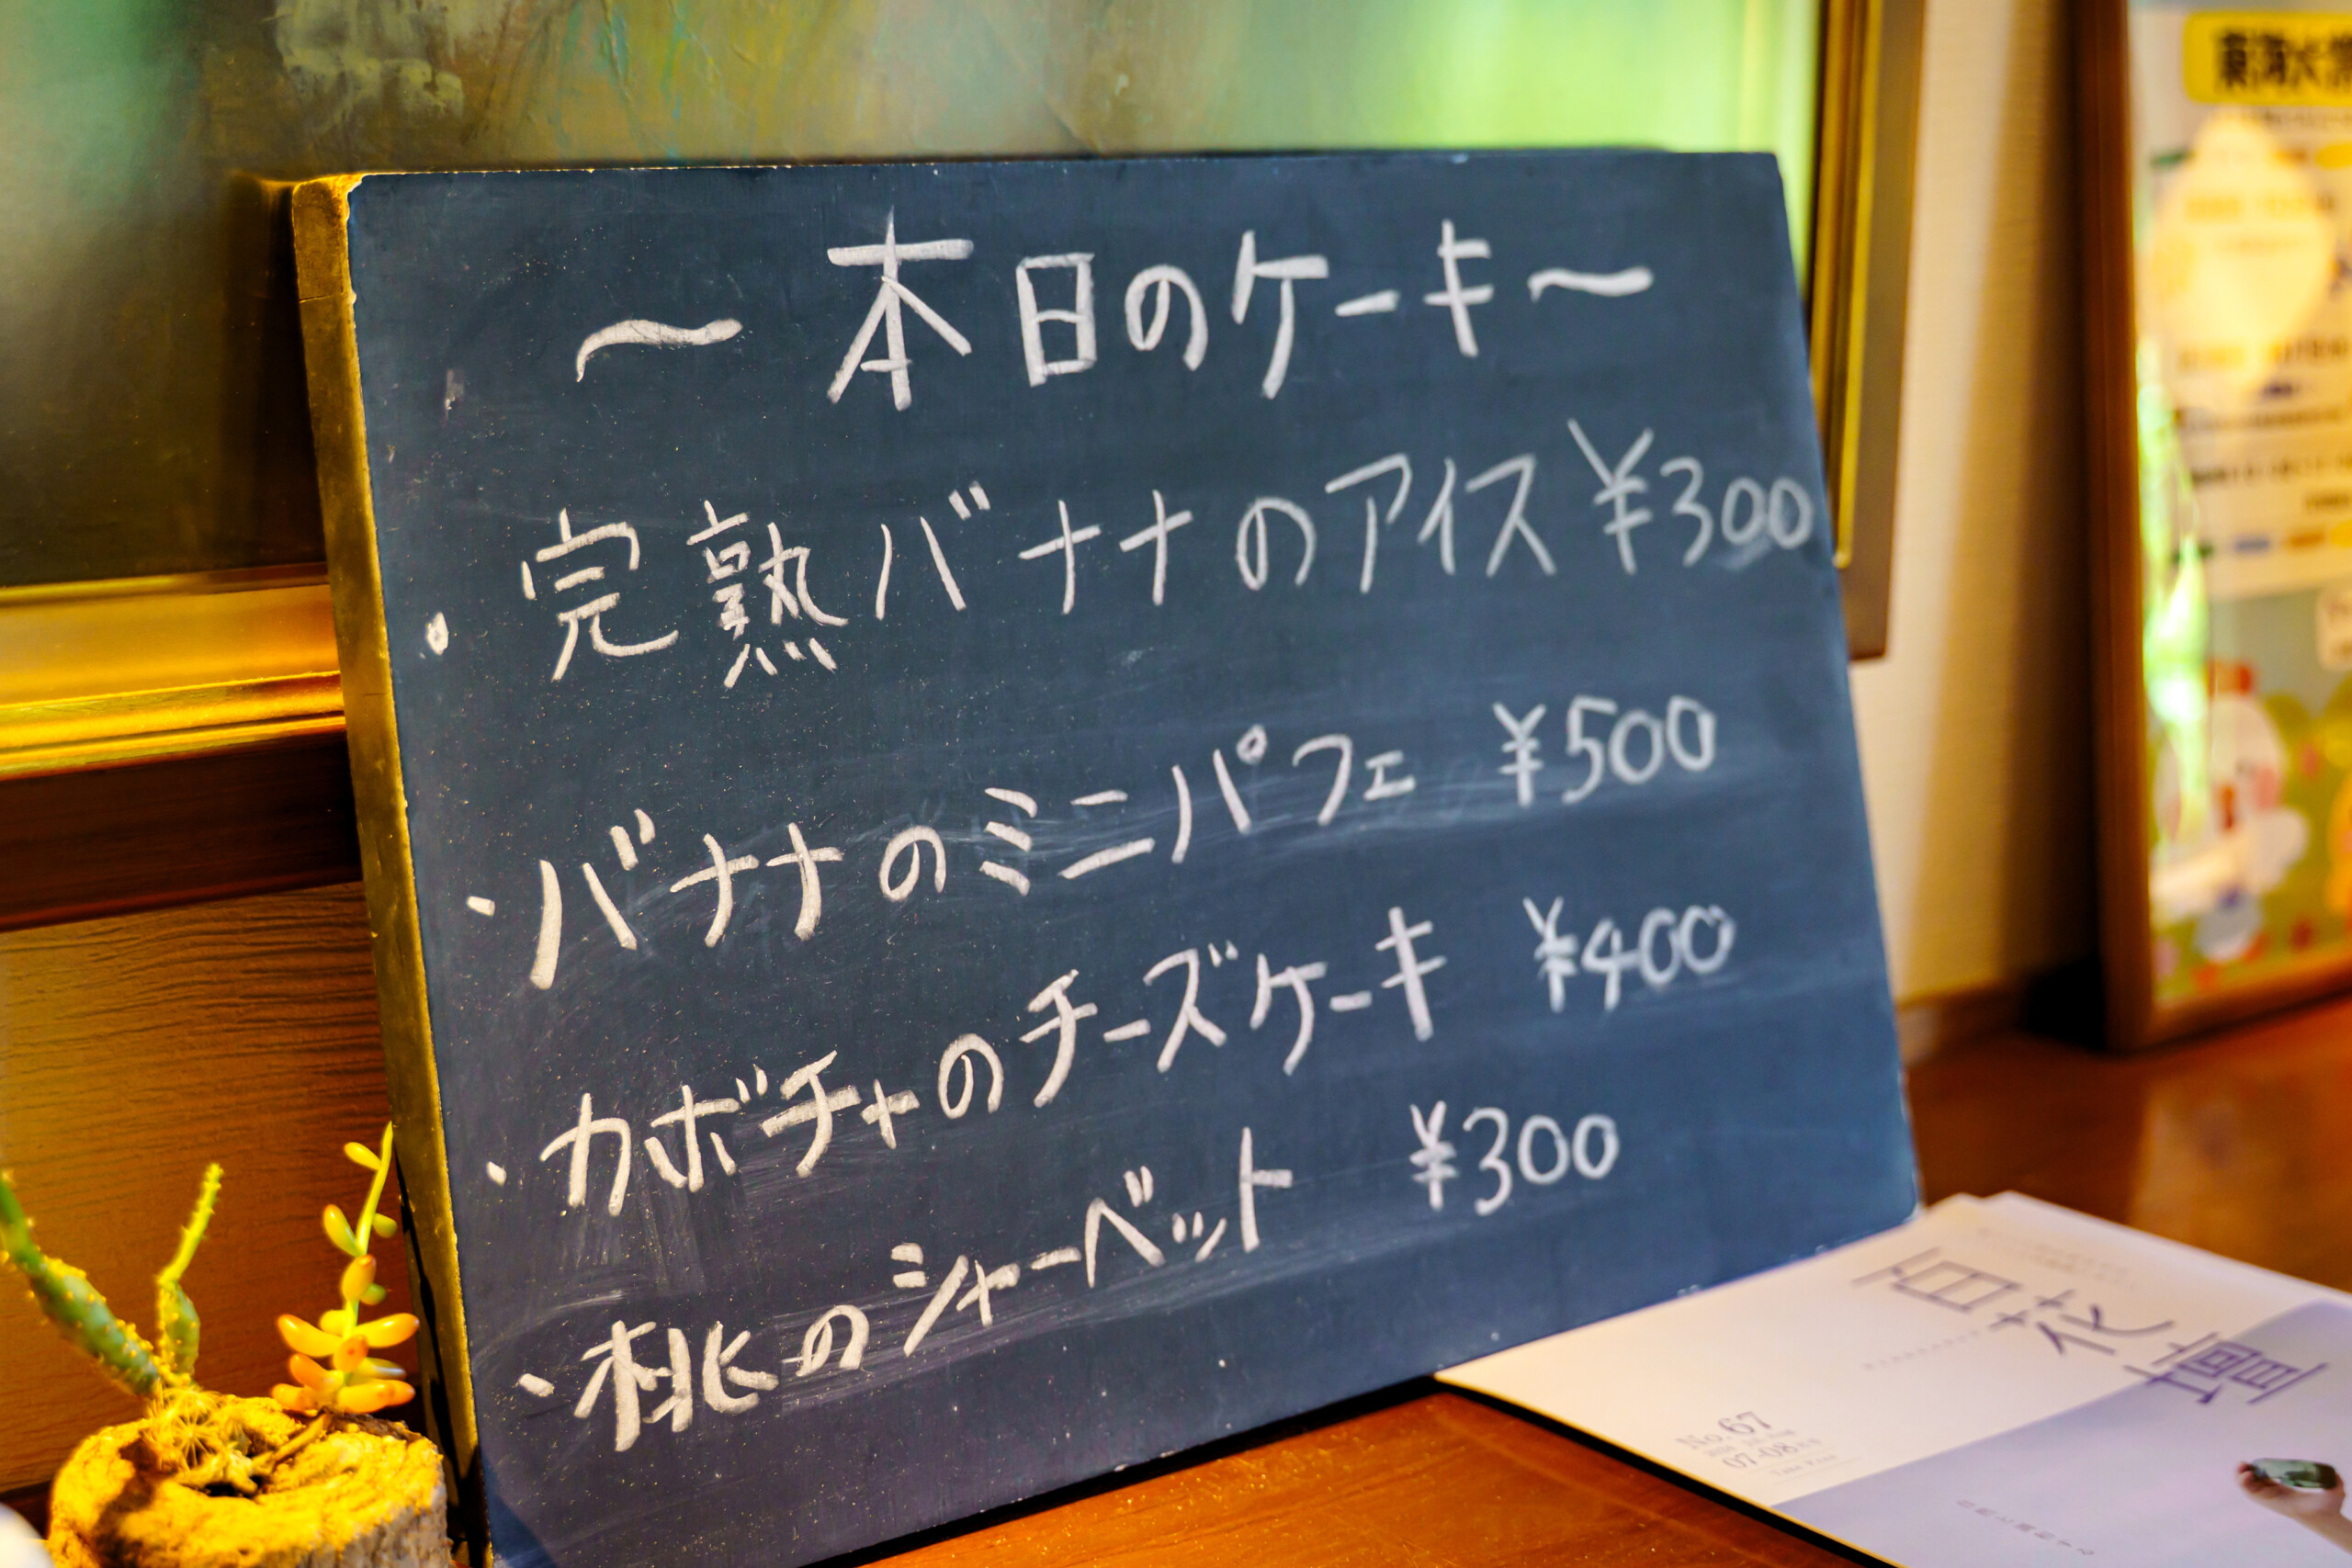 ～本日のケーキ～
・完熟バナナのアイス ¥300
・バナナのミニパフェ ¥500
・カボチャのチーズケーキ ¥400
・桃のシャーベット ¥300
百花
No.67
07-08